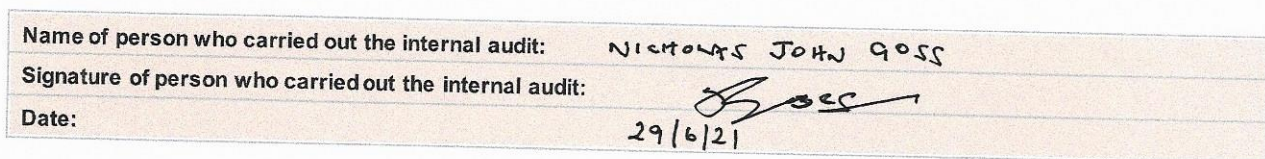 Name of person who carried out the internal audit: NICHOLAS JOHN GOSS
Signature of person who carried out the internal audit:
Date: 29/6/21